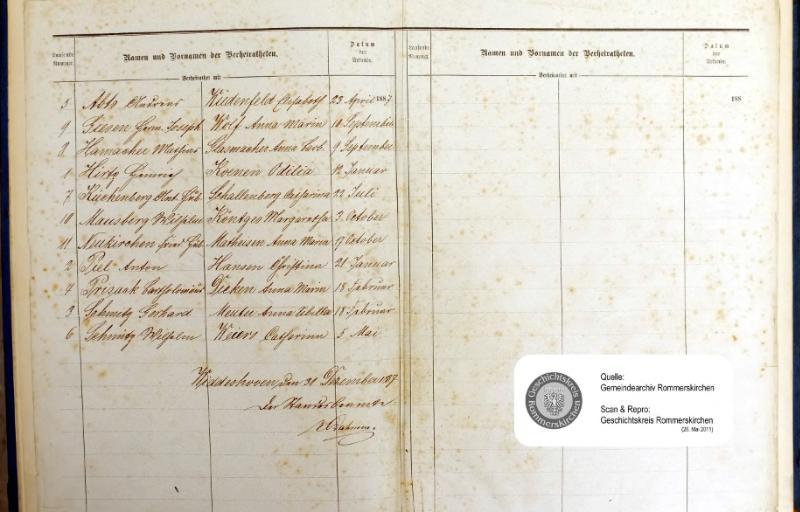 Laufende Nummer. Namen und Vornamen der Verheiratheten. Datum der Urkunde.
Verheirathet mit
5 Abts Wiedenfeld Elisabeth 23 April 1887
9 Giesen Herm. Joseph Wolf Anna Maria 10 September
8 Hamacher Mathias Glasmacher Anna Barb. 9 September
1 Hirtz Heinrich Koenen Odilia 12 Januar
7 Küchenberg Schallenberg Catharina 22 Juli
10 Mausberg Wilhelm Köntges Margaretha 3. October
11 Neukirchen Matheisen Anna Maria 17 October
2 Piel Anton Hansen Christina 21 Januar
Bartholomäus Dicken Anna Maria 18 Februar
3 Schmitz Gerhard Anna Sibilla 18 Februar
6 Schmitz Wilhelm Weiers Catharina 5 Mai
Widdeshoven, den 31 Dezember 1887
Der Standesbeamte
Laufende Nummer. Namen und Vornamen der Verheiratheten. Datum der Urkunde.
Verheirathet mit
188
Geschichtskreis Rommerskirchen
Quelle:
Gemeindearchiv Rommerskirchen
Scan & Repro:
Geschichtskreis Rommerskirchen
(26. Mai 2011)